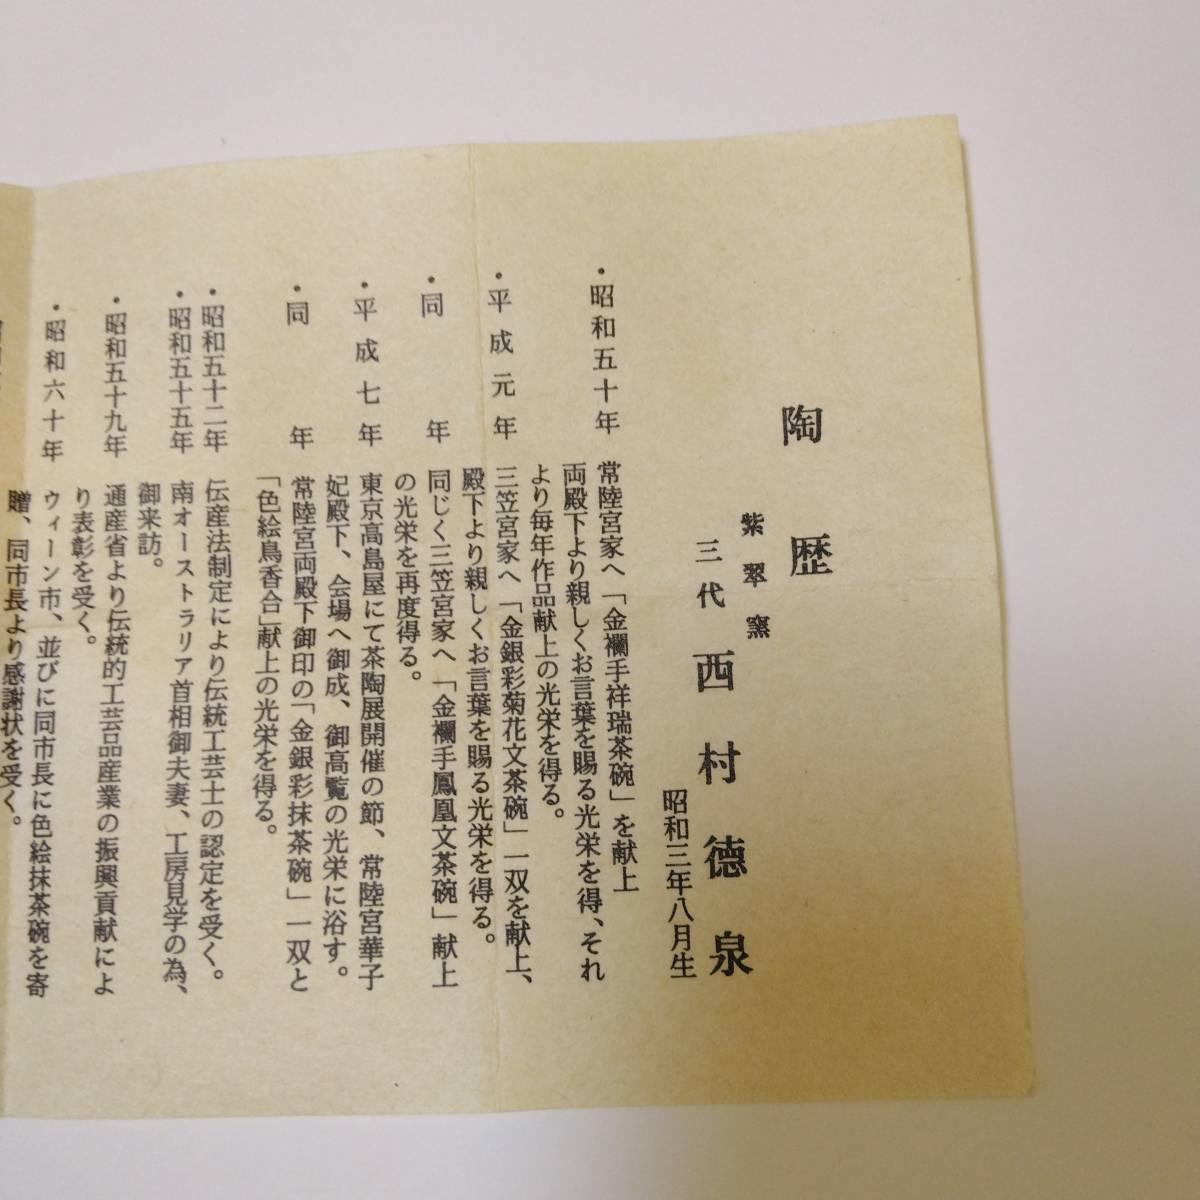 陶歴
紫翠窯
三代 西村徳泉
昭和三年八月生
・昭和五十年 常陸宮家へ「金襴手祥瑞茶碗」を献上
両殿下より親しくお言葉を賜る光栄を得、それ
より毎年作品献上の光栄を得る。
・平成元年 三笠宮家へ「金銀彩菊花文茶碗」一双を献上、
殿下より親しくお言葉を賜る光栄を得る。
・同年 同じく三笠宮家へ「金襴手鳳凰文茶碗」献上
の光栄を再度得る。
・平成七年 東京高島屋にて茶陶展開催の節、常陸宮華子
妃殿下、会場へ御成、御高覧の光栄に浴す。
・同年 常陸宮両殿下御印の「金銀彩抹茶碗」一双と
「色絵鳥香合」献上の光栄を得る。
・昭和五十二年 伝産法制定により伝統工芸士の認定を受く。
・昭和五十五年 南オーストラリア首相御夫妻、工房見学の為、
御来訪。
・昭和五十九年 通産省より伝統的工芸品産業の振興貢献によ
り表彰を受く。
・昭和六十年 ウィーン市、並びに同市長に色絵抹茶碗を寄
贈、同市長より感謝状を受く。